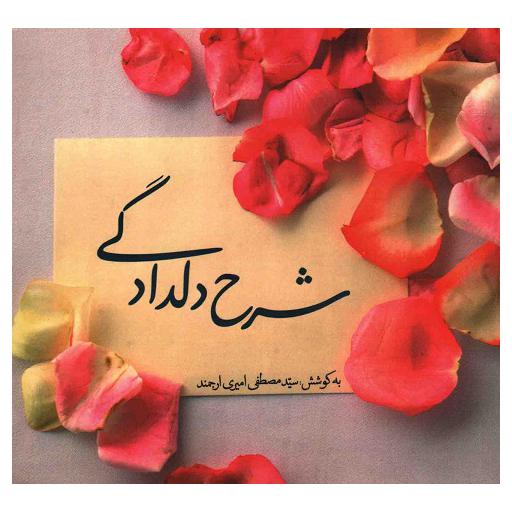 شرح دلدادگی
به کوشش: سیّد مصطفی امیری ارجمند